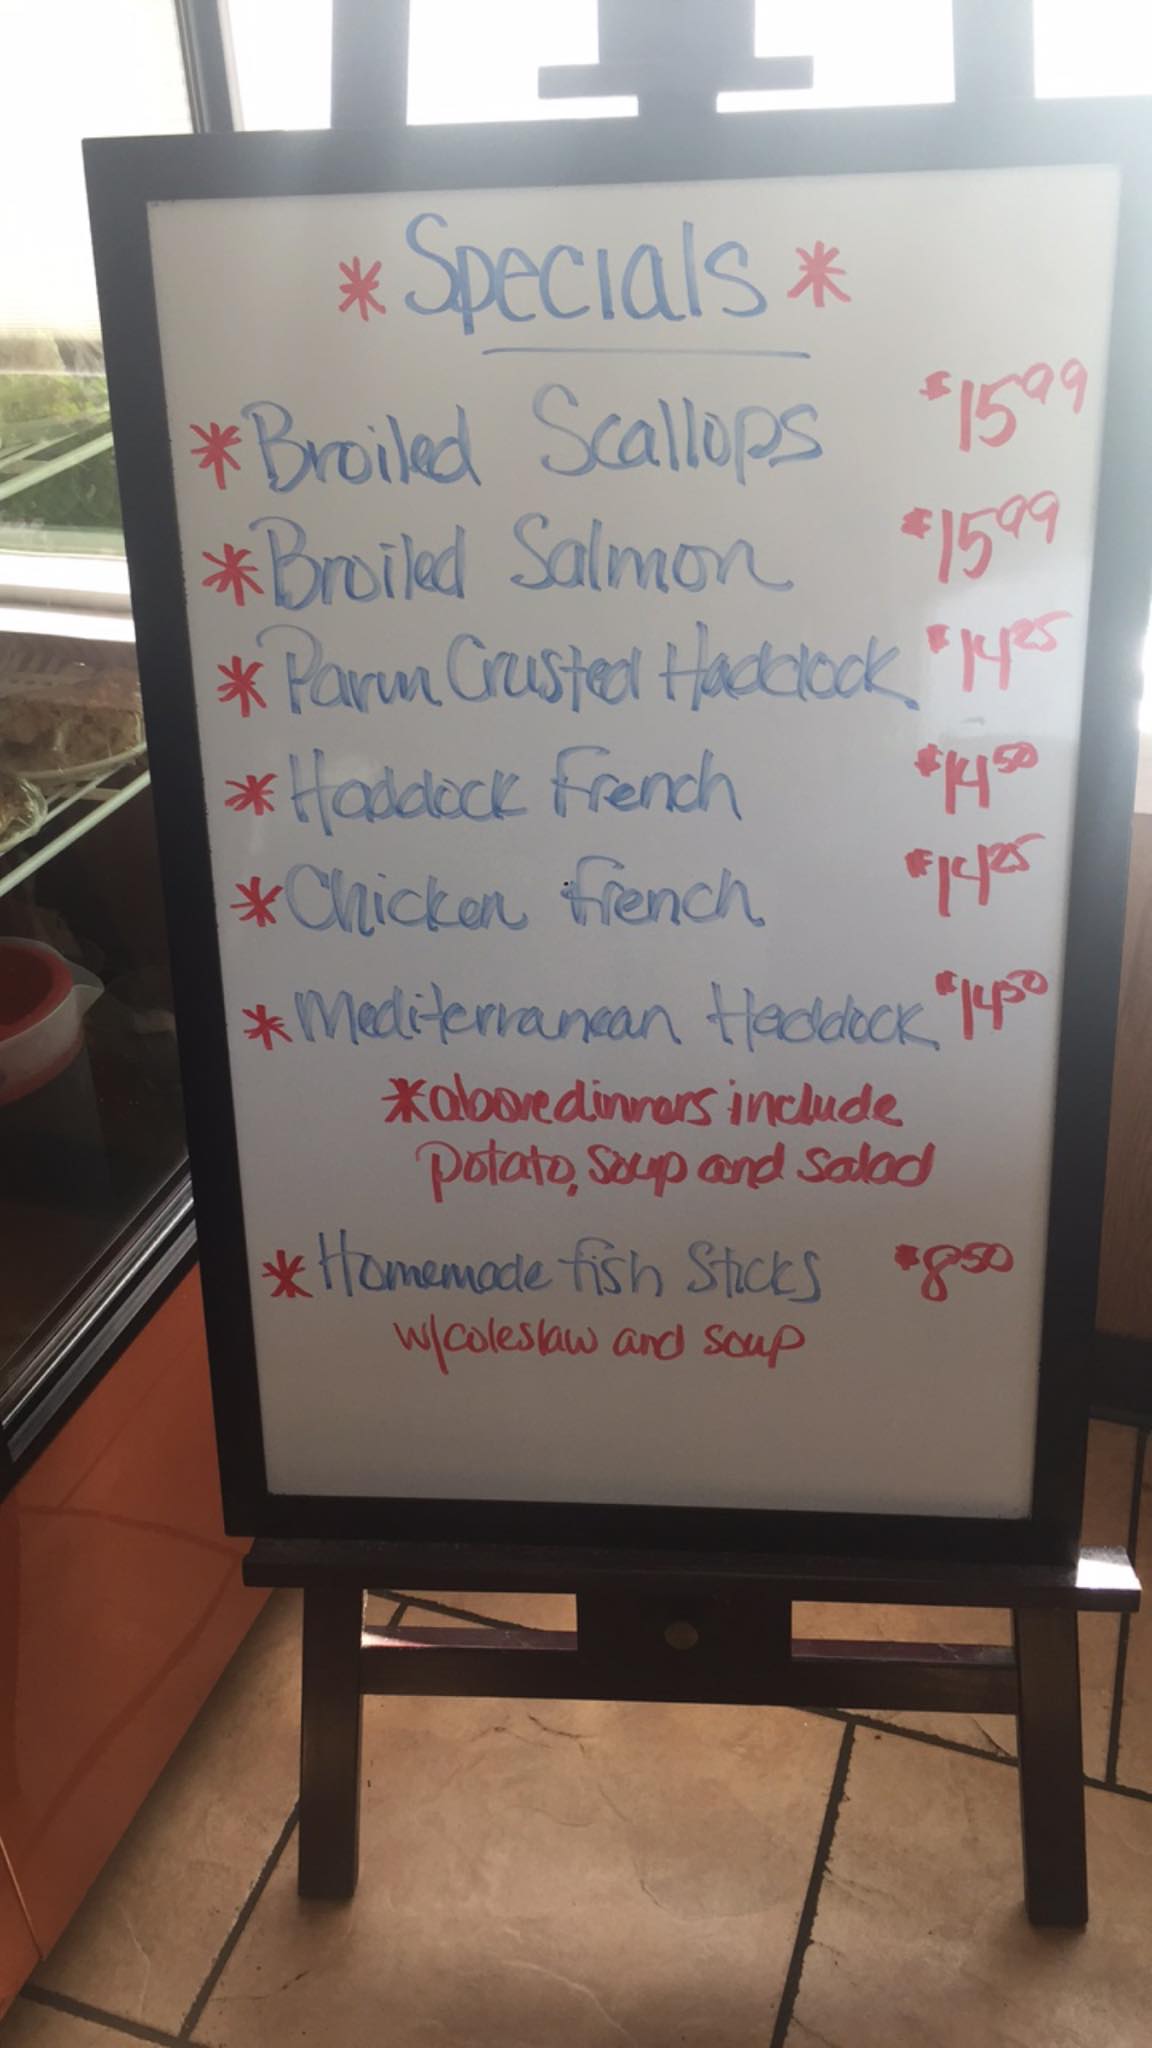 * Specials *
* Broiled Scallops $15.99
* Broiled Salmon $15.99
* Parm Crusted Haddock $14.25
* Haddock French $14.50
* Chicken French $14.25
* Mediterranean Haddock $14.50
* above dinners include
potato, soup and salad
* Homemade fish sticks $8.50
w/coleslaw and soup